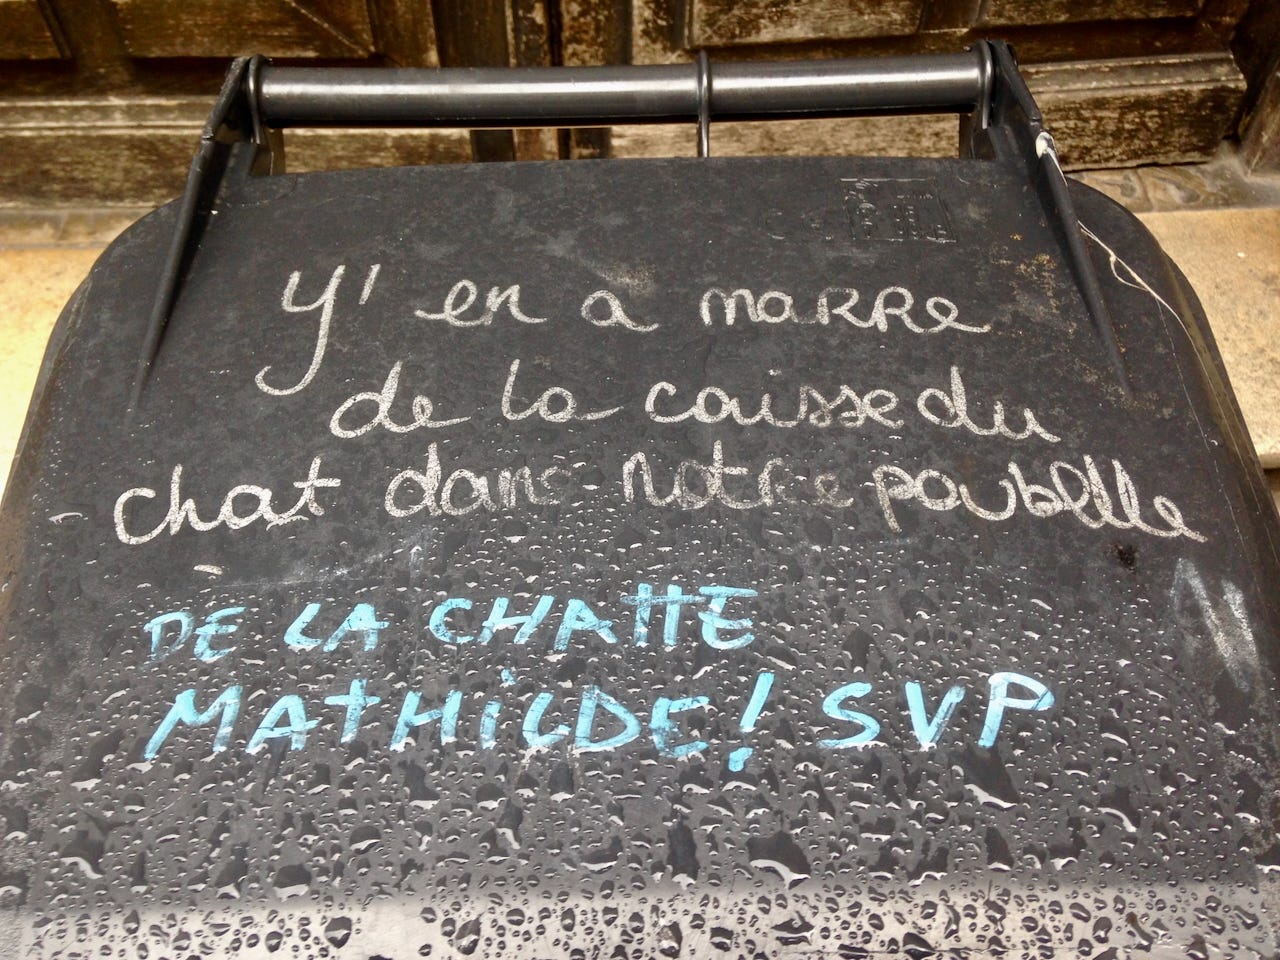 y' en a maRRe
de la caisse du
chat dans notre poubelle
DE LA CHATTE
MATHiLDE! SVP